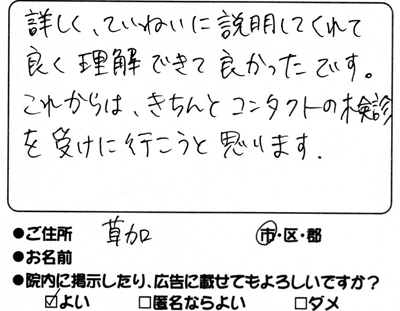 詳しく、ていねいに説明してくれて
良く理解できて良かったです。
これからは、きちんとコンタクトの検診
を受けに行こうと思います.
●ご住所 草加 市・区・郡
●お名前
●院内に掲示したり、広告に載せてもよろしいですか?
☑よい □匿名ならよい □ダメ